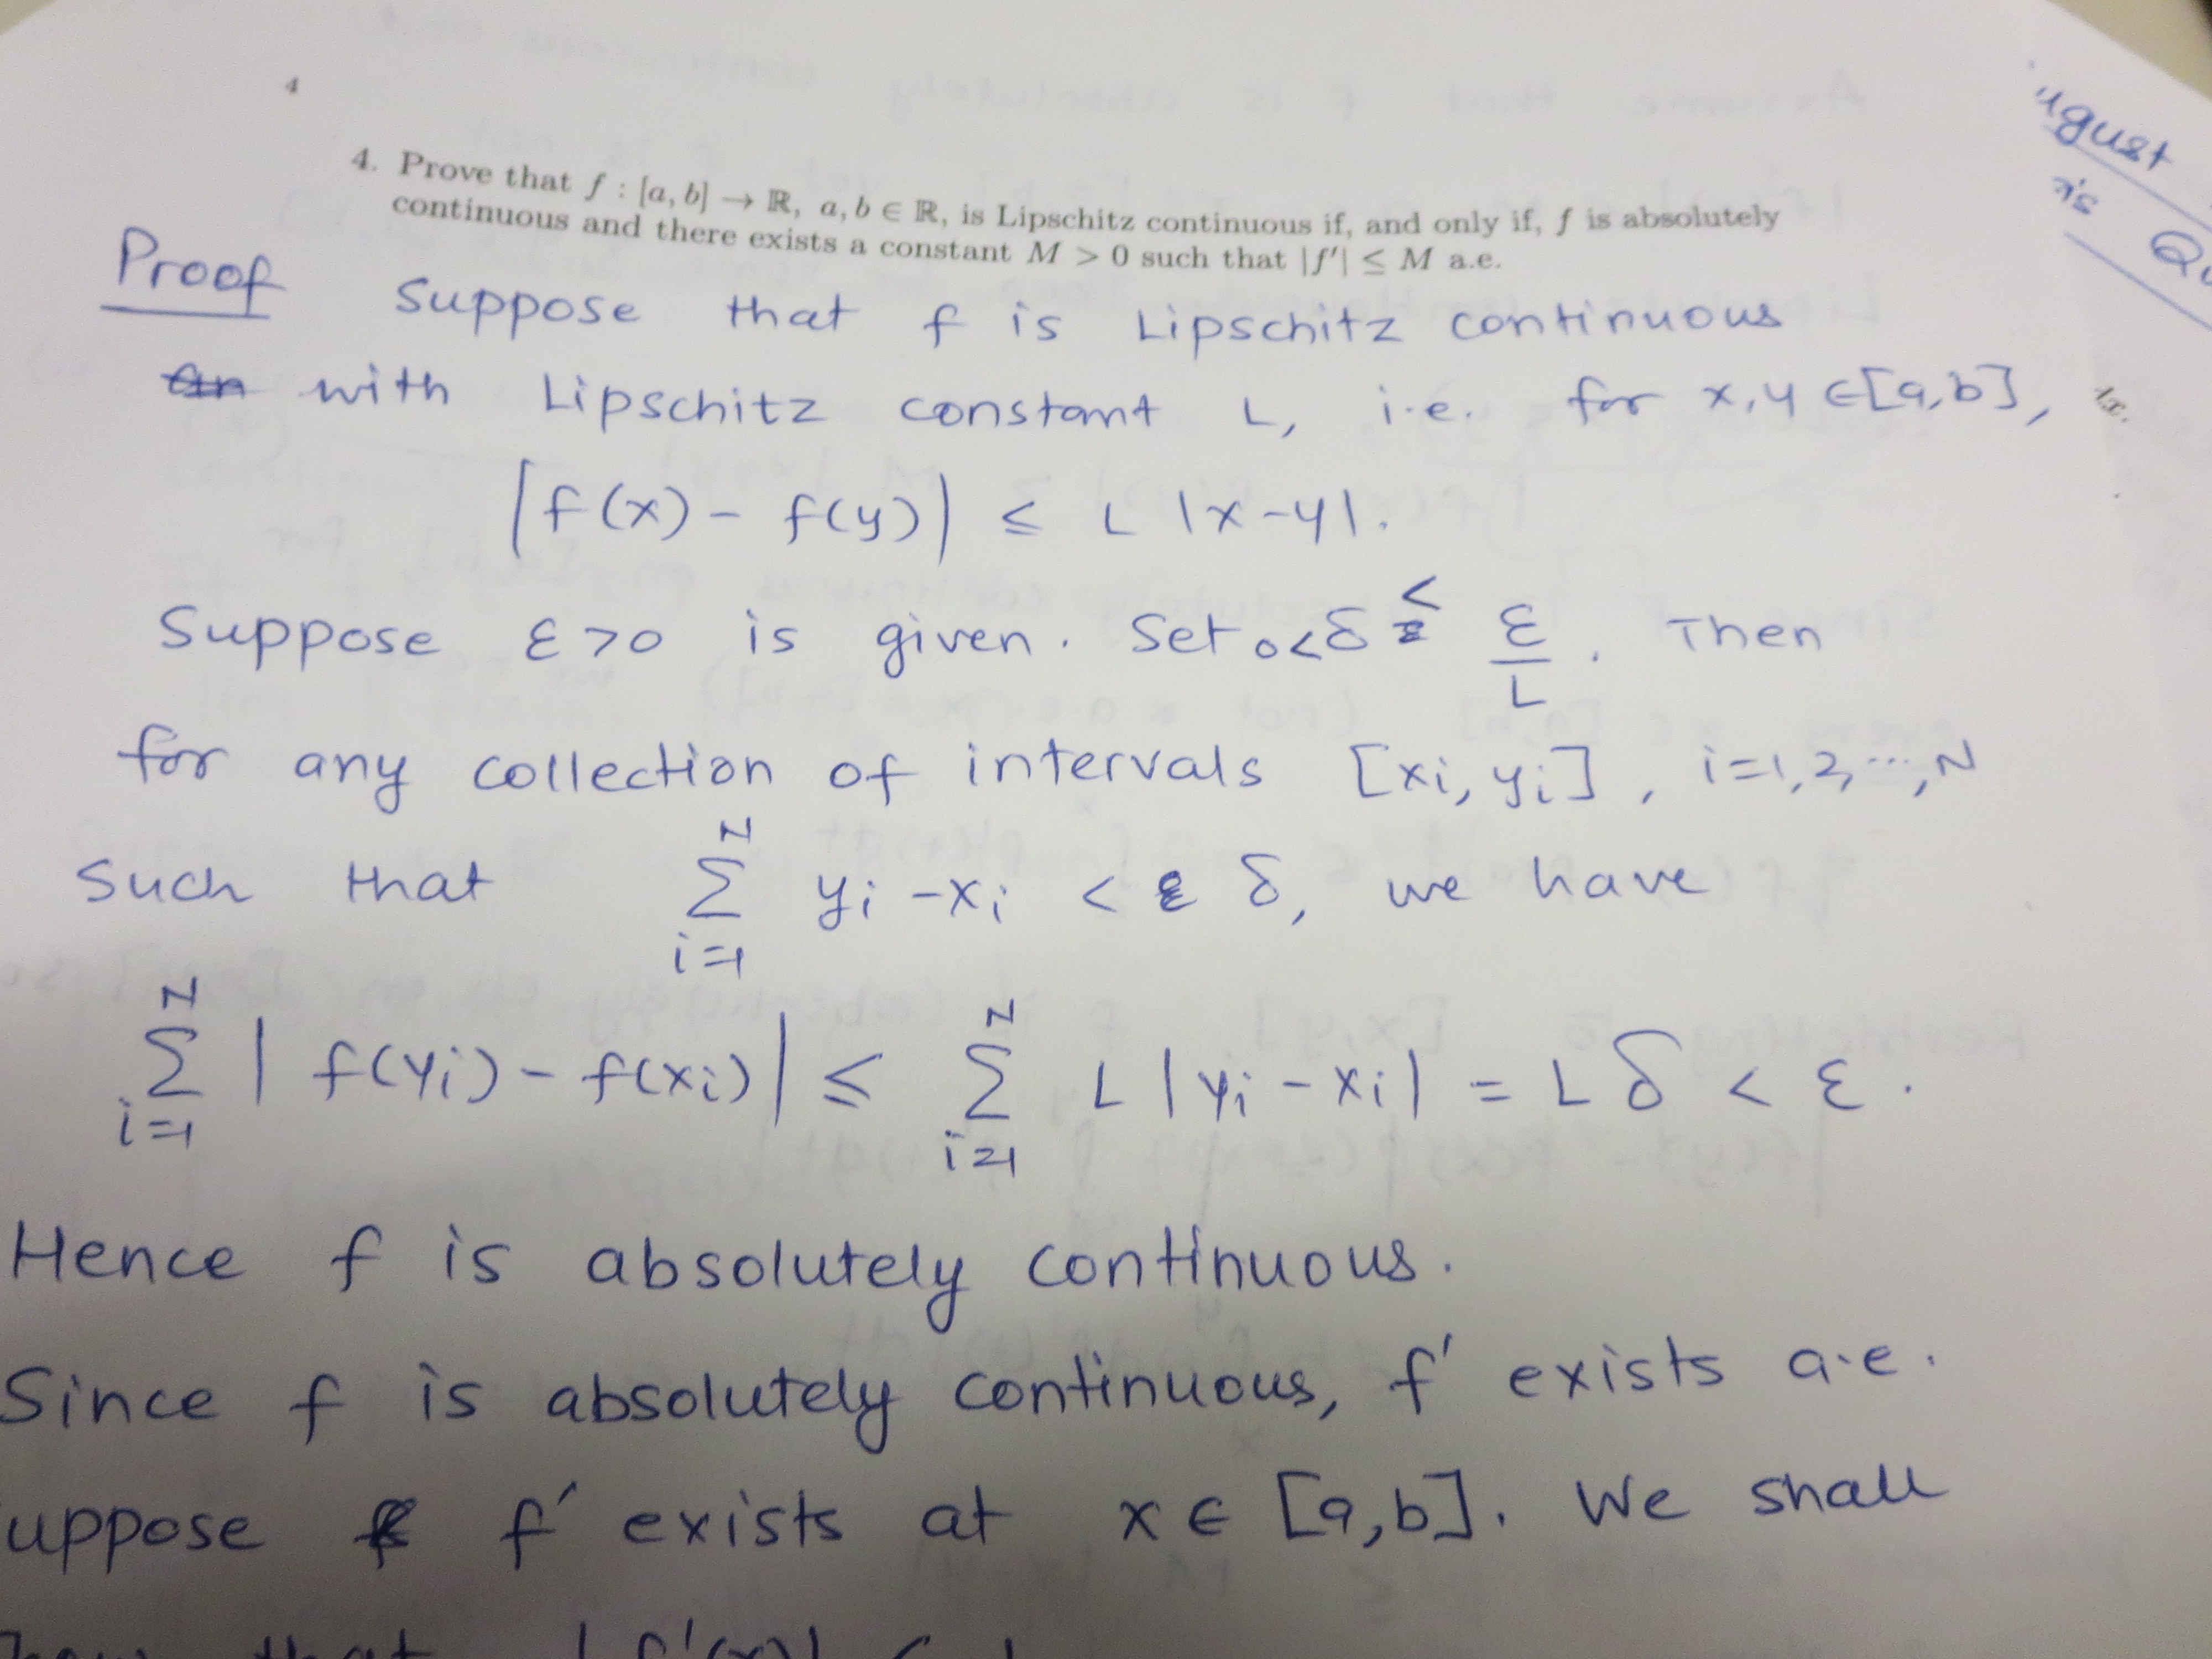 4
4. Prove that f : [a, b] → ℝ, a, b ∈ ℝ, is Lipschitz continuous if, and only if, f is absolutely
continuous and there exists a constant M > 0 such that |f'| ≤ M a.e.
Proof Suppose that f is Lipschitz continuous
with Lipschitz constant L, i.e. for x,y ∈ [a,b],
|f(x) - f(y)| ≤ L |x-y|.
Suppose ε>0 is given. Set 0<δ < ε/L. Then
for any collection of intervals [xi, yi], i=1,2,...,N
such that ∑_{i=1}^{N} yi - xi < δ, we have
∑_{i=1}^{N} | f(yi) - f(xi)| ≤ ∑_{i=1}^{N} L |yi - xi| = L δ < ε.
Hence f is absolutely continuous.
Since f is absolutely continuous, f' exists a.e.
uppose f' exists at x ∈ [a,b]. We shall